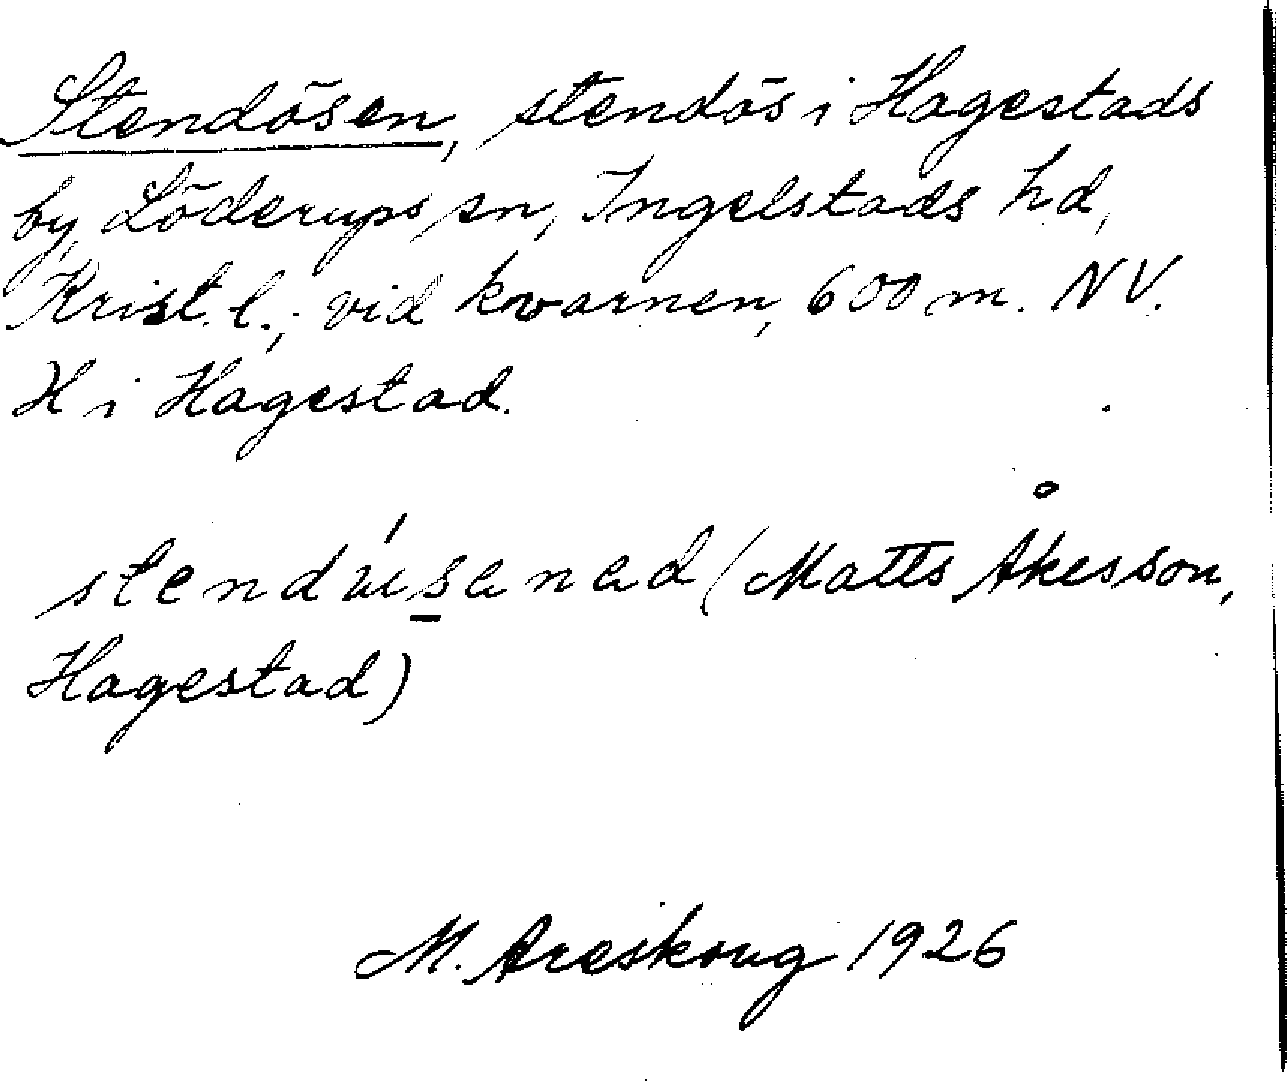 Stendösen, stendös i Hagestads
by, Löderups sn, Ingelstads hd,
Krist. l.; vid kvarnen, 600 m. NV.
H i Hagestad.
(Matts Åkesson,
Hagestad)
M. Areskoug 1926